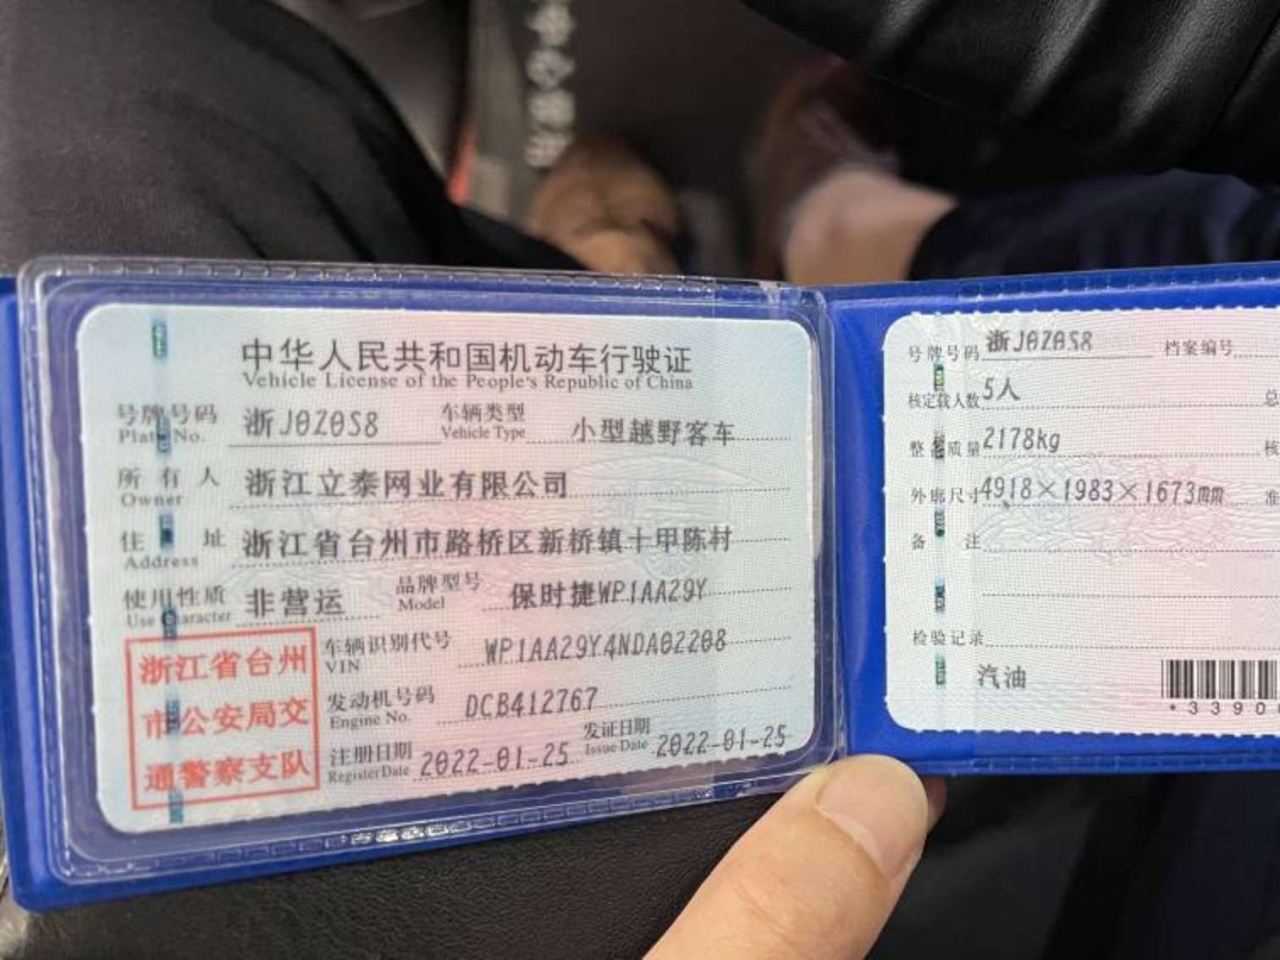 中心指示
中华人民共和国机动车行驶证
Vehicle License of the People's Republic of China
号牌号码 浙J0Z0S8 车辆类型 小型越野客车
Plate No. Vehicle Type
所有人 浙江立泰网业有限公司
Owner
住址 浙江省台州市路桥区新桥镇十甲陈村
Address
使用性质 非营运 品牌型号 保时捷WP1AA29Y
Use Character Model
浙江省台州
市公安局交
通警察支队
车辆识别代号 WP1AA29Y4NDA02208
VIN
发动机号码 DCB412767
Engine No.
注册日期 2022-01-25 发证日期 2022-01-25
Register Date Issue Date
号牌号码 浙J0Z0S8 档案编号
核定载人数 5人 总
整备质量 2178kg 核
外廓尺寸 4918×1983×1673mm 准
备注
检验记录
汽油
*3390